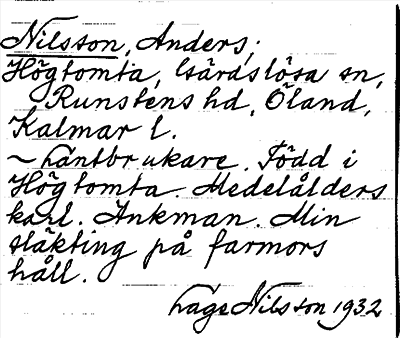 Nilsson, Anders,
Högtomta, Gärdslösa sn,
Runstens hd, Öland,
Kalmar l.
~ Lantbrukare. Född i
Högtomta. Medelålders
karl. Änkman. Min
släkting på farmors
håll.
Lage Nilsson 1932